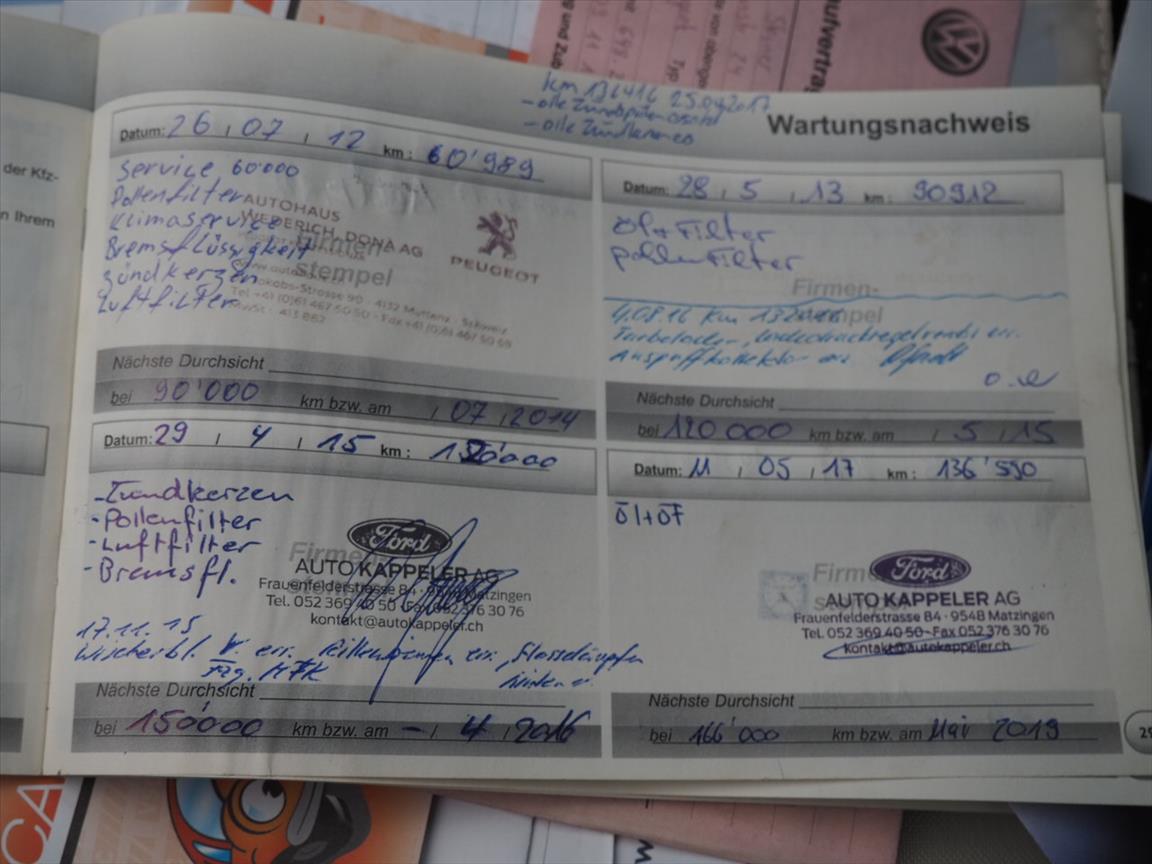 der Kfz-
n Ihrem
ufvertrag
km 136416 25.04.2017
- alle
- alle Zündkerzen
Wartungsnachweis
Datum: 26 / 07 / 12 km: 60'989
Service 60'000
Pollenfilter
Klimaservice
Bremsflüssigkeit
Zündkerzen
Luftfilter
AUTOHAUS
WEDERICH, DONA AG
Firmen-
stempel
PEUGEOT
Jakobs-Strasse 90 - 4132 Muttenz - Schweiz
Tel +41 (0)61 467 50 50 - Fax +41 (0)61 467 50 69
Nächste Durchsicht
bei 90'000 km bzw. am / 07 / 2014
Datum: 28 / 5 / 13 km: 90912
Öl + Filter
Pollenfilter
Firmen-
stempel
4.08.16 km
Turbolader, Ladedruckregelventil er.
Auspuffkollektor er.
Nächste Durchsicht
bei 120 000 km bzw. am / 5 / 15
Datum: 29 / 4 / 15 km: 120'000
- Zündkerzen
- Pollenfilter
- Luftfilter
- Bremsfl.
Firmen-
Ford
AUTO KAPPELER AG
Frauenfelderstrasse 84 · 9548 Matzingen
Tel. 052 369 40 50 · Fax 052 376 30 76
kontakt@autokappeler.ch
17.11.15
Wischerbl. V. ers. ers. Stossdämpfer
Fzg. MFK hinten
Nächste Durchsicht
bei 150'000 km bzw. am - / 4 / 2016
Datum: 11 / 05 / 17 km: 136'550
Öl+ÖF
Firmen-
stempel
Ford
AUTO KAPPELER AG
Frauenfelderstrasse 84 · 9548 Matzingen
Tel. 052 369 40 50 · Fax 052 376 30 76
kontakt@autokappeler.ch
Nächste Durchsicht
bei 166'000 km bzw. am Mai 2019